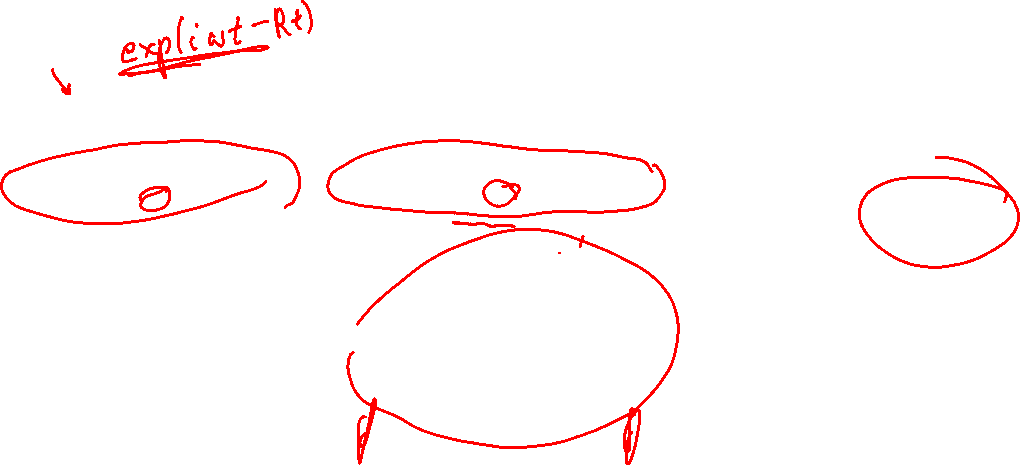 exp(iωt-Rt)